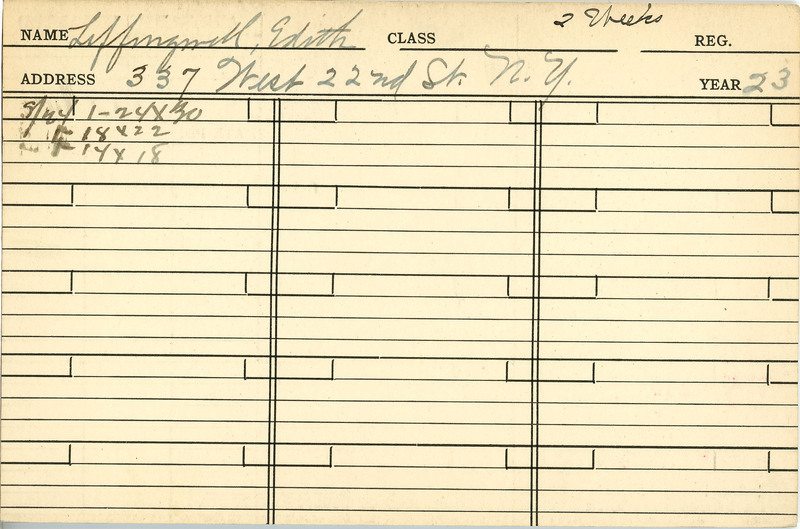 NAME Leffingwell, Edith CLASS 2 Weeks REG.
ADDRESS 337 West 22nd St. N.Y. YEAR 23
1-24x30
18x22
14x18